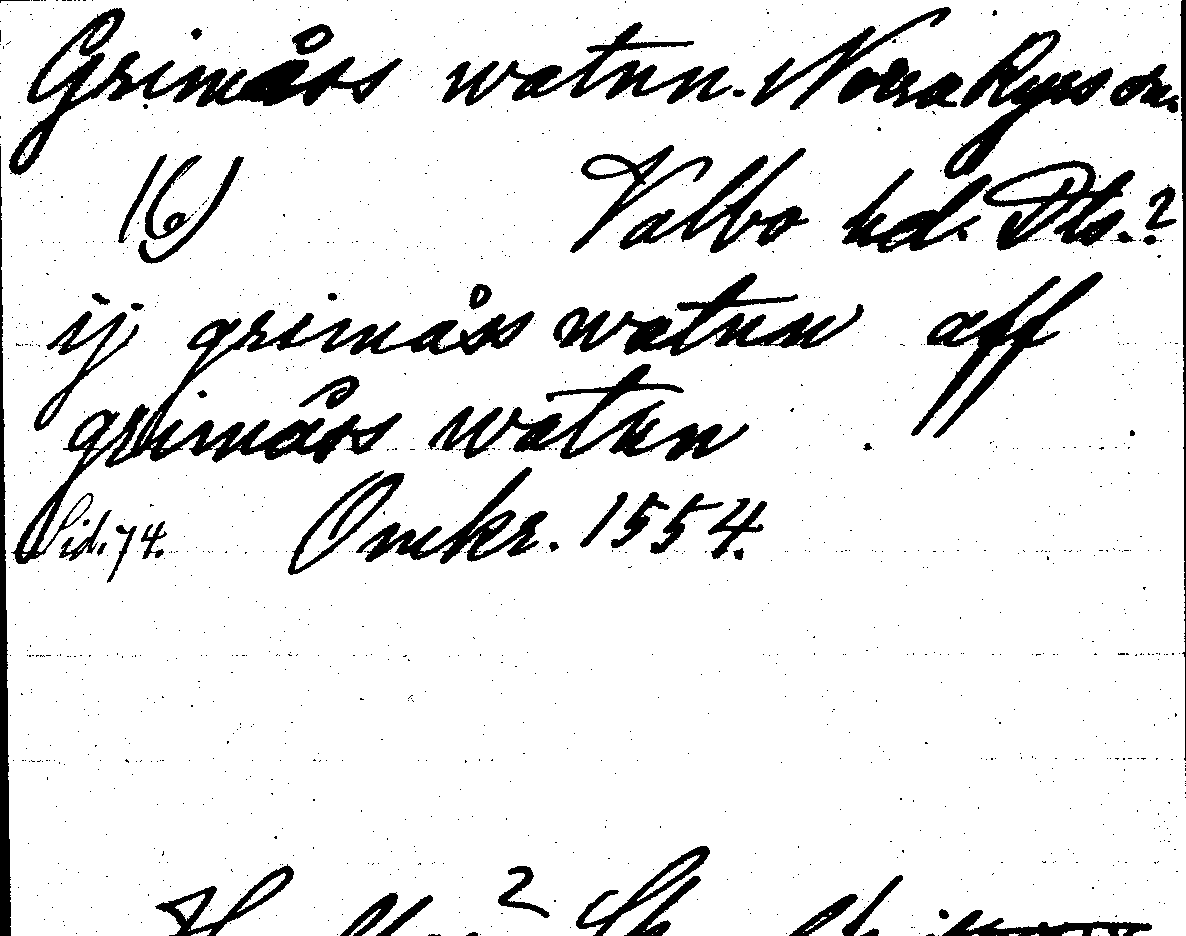 Grimåss watnn. Norra Ryrs sn.
16) Valbo hd. Dls.?
ij grimåss watnn aff
grimåss watnn
Sid. 74. Omkr. 1554.